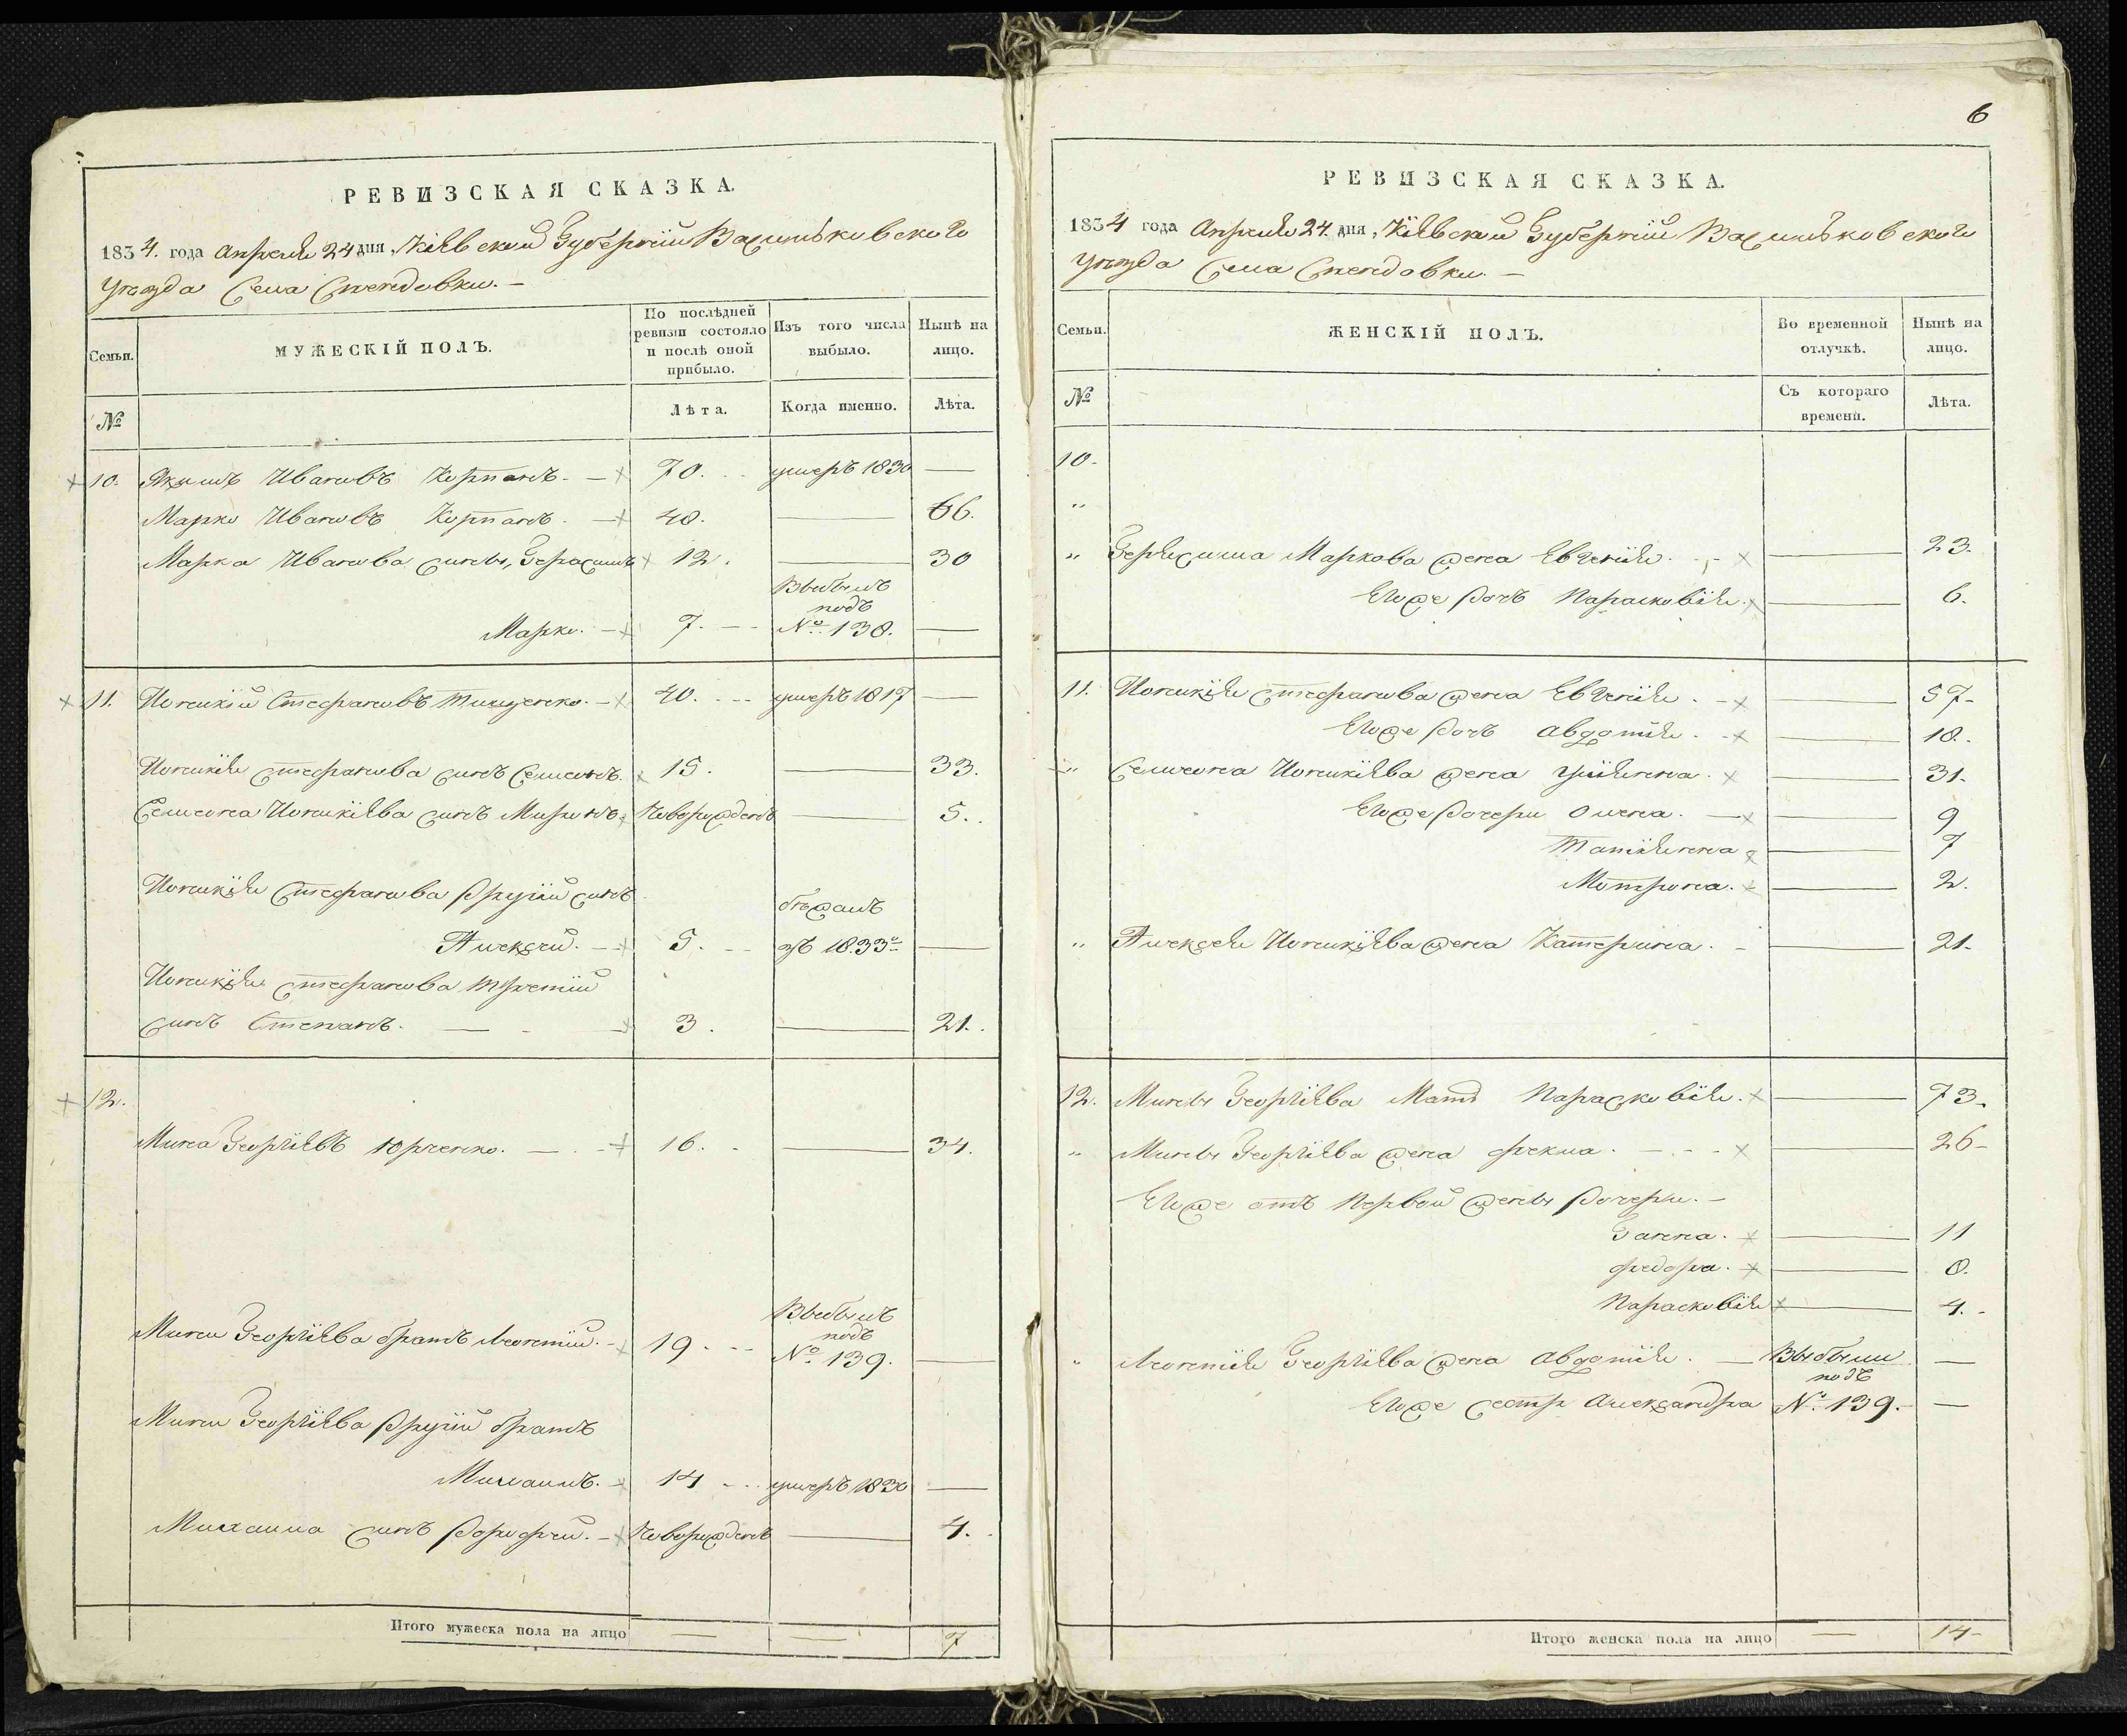 РЕВИЗСКАЯ СКАЗКА.
1834. года Апреля 24 дня, Кіевской Губерніи Васильковскаго
уѣзда Села Снетовки. —
Семьи.
МУЖЕСКІЙ ПОЛЪ.
По послѣдней ревизіи состояло и послѣ оной прибыло.
Изъ того числа выбыло.
Нынѣ на лицо.
№
Лѣта.
Когда именно.
Лѣта.
10. Якимъ Ивановъ Корпанъ. — 70. умеръ 1830 —
Марко Ивановъ Корпанъ. — 48. — 66.
Марка Иванова сыны, Герасимъ 12. — 30
Выбылъ
подъ
Марко. — 7. — № 138. —
11. Іоникій Стефановъ Тищенко. — 40. умеръ 1817 —
Іоникія Стефанова сынъ Семеонъ. 15. — 33.
Семеона Іоникіева сынъ Миронъ. Новорожденъ — 5.
Іоникія Стефанова другій сынъ
бѣжалъ
Алексѣй. — 5. — въ 1833 —
Іоникія Стефанова третій
сынъ Степанъ. — 3. — 21.
12.
Мина Георгіевъ Юрченко. — 16. — 34.
Выбылъ
подъ
Мины Георгіева братъ Леонтій. — 19. — № 139. —
Мины Георгіева другій братъ
Михаилъ. — 14 умеръ 1830 —
Михаила сынъ Дорофей. — Новорожденъ — 4.
Итого мужеска пола на лицо — — 7
6
РЕВИЗСКАЯ СКАЗКА.
1834 года Апреля 24 дня, Кіевской Губерніи Васильковскаго
уѣзда Села Снетовки. —
Семьи.
ЖЕНСКІЙ ПОЛЪ.
Во временной отлучкѣ.
Нынѣ на лицо.
№
Съ котораго времени.
Лѣта.
10.
"
" Герасима Маркова жена Евгенія. — 23.
Егоже дочь Парасковія. — 6.
11. Іоникія Стефанова жена Евгенія. — 57
Егоже дочь Авдотія. — 18.
" Семеона Іоникіева жена Уліянна. — 31
Егоже дочери Олена. — 9
Татіянна — 7
Мотрона. — 2.
" Алексѣя Іоникіева жена Катерина. — 21
12. Мины Георгіева Мать Парасковія. — 73.
" Мины Георгіева жена Фекла. — 26
Егоже отъ первой жены дочери. —
Ганна. — 11
Федора. — 8.
Парасковія — 4.
" Леонтія Георгіева жена Авдотія. — Выбыли —
подъ
Егоже сестр Александра № 139. —
Итого женска пола на лицо — 14